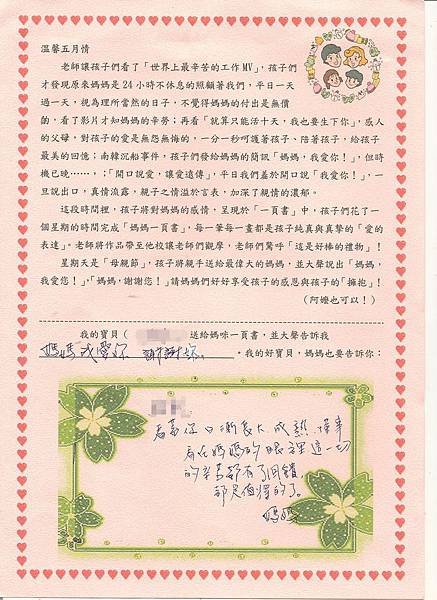 溫馨五月情
老師讓孩子們看了「世界上最辛苦的工作MV」，孩子們
才發現原來媽媽是24小時不休息的照顧著我們，平日一天
過一天，視為理所當然的日子，不覺得媽媽的付出是無價
的，看了影片才知媽媽的辛勞；再看「就算只能活十天，我也要生下你」，感人
的父母，對孩子的愛是無怨無悔的，一分一秒呵護著孩子、陪著孩子，給孩子
最美的回憶；南韓沉船事件，孩子們發給媽媽的簡訊「媽媽，我愛你！」，但時
機已晚……，；「開口說愛，讓愛遠傳」，平日我們羞於開口說「我愛你！」，一
旦說出口，真情流露，親子之情溢於言表，加深了親情的濃郁。
這段時間裡，孩子將對媽媽的感情，呈現於「一頁書」中，孩子們花了一
個星期的時間完成「媽媽一頁書」，每一筆每一畫都是孩子純真與真摯的「愛的
表達」，老師將作品帶至他校讓老師們觀摩，老師們驚呼「這是好棒的禮物」！
星期天是「母親節」，孩子將親手送給最偉大的媽媽，並大聲說出「媽媽，
我愛您！」，「媽媽，謝謝您！」請媽媽們好好享受孩子的感恩與孩子的「擁抱」！
（阿嬤也可以！）
我的寶貝（ ）送給媽咪一頁書，並大聲告訴我
媽媽我愛你 謝謝您。。我的好寶貝，媽媽也要告訴你：
看著你日漸長大成熟、懂事
看在媽媽的眼裡這一切
的辛苦都有了回饋，
都是值得的了。
媽媽